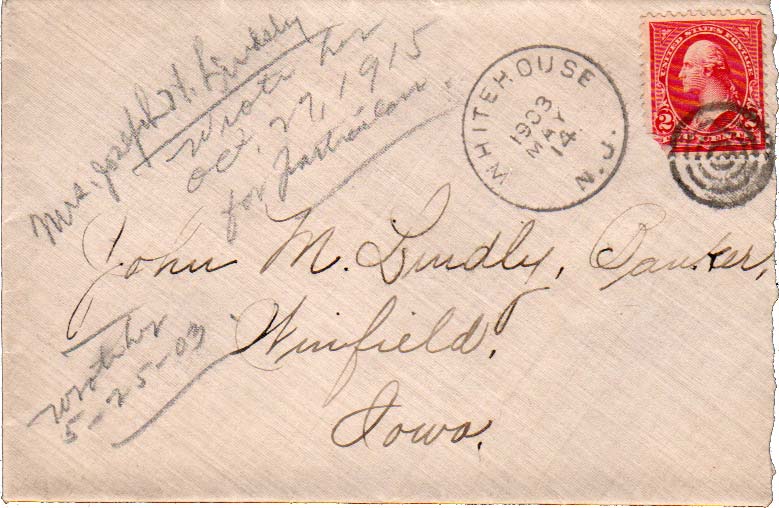 Mrs. Joseph H. Lindsly
wrote her
Oct. 27, 1915
for particulars.
WHITEHOUSE N.J.
1903
MAY
14
UNITED STATES POSTAGE
2
John M. Lindly, Banker,
Winfield,
Iowa.
wrote her
5-25-03